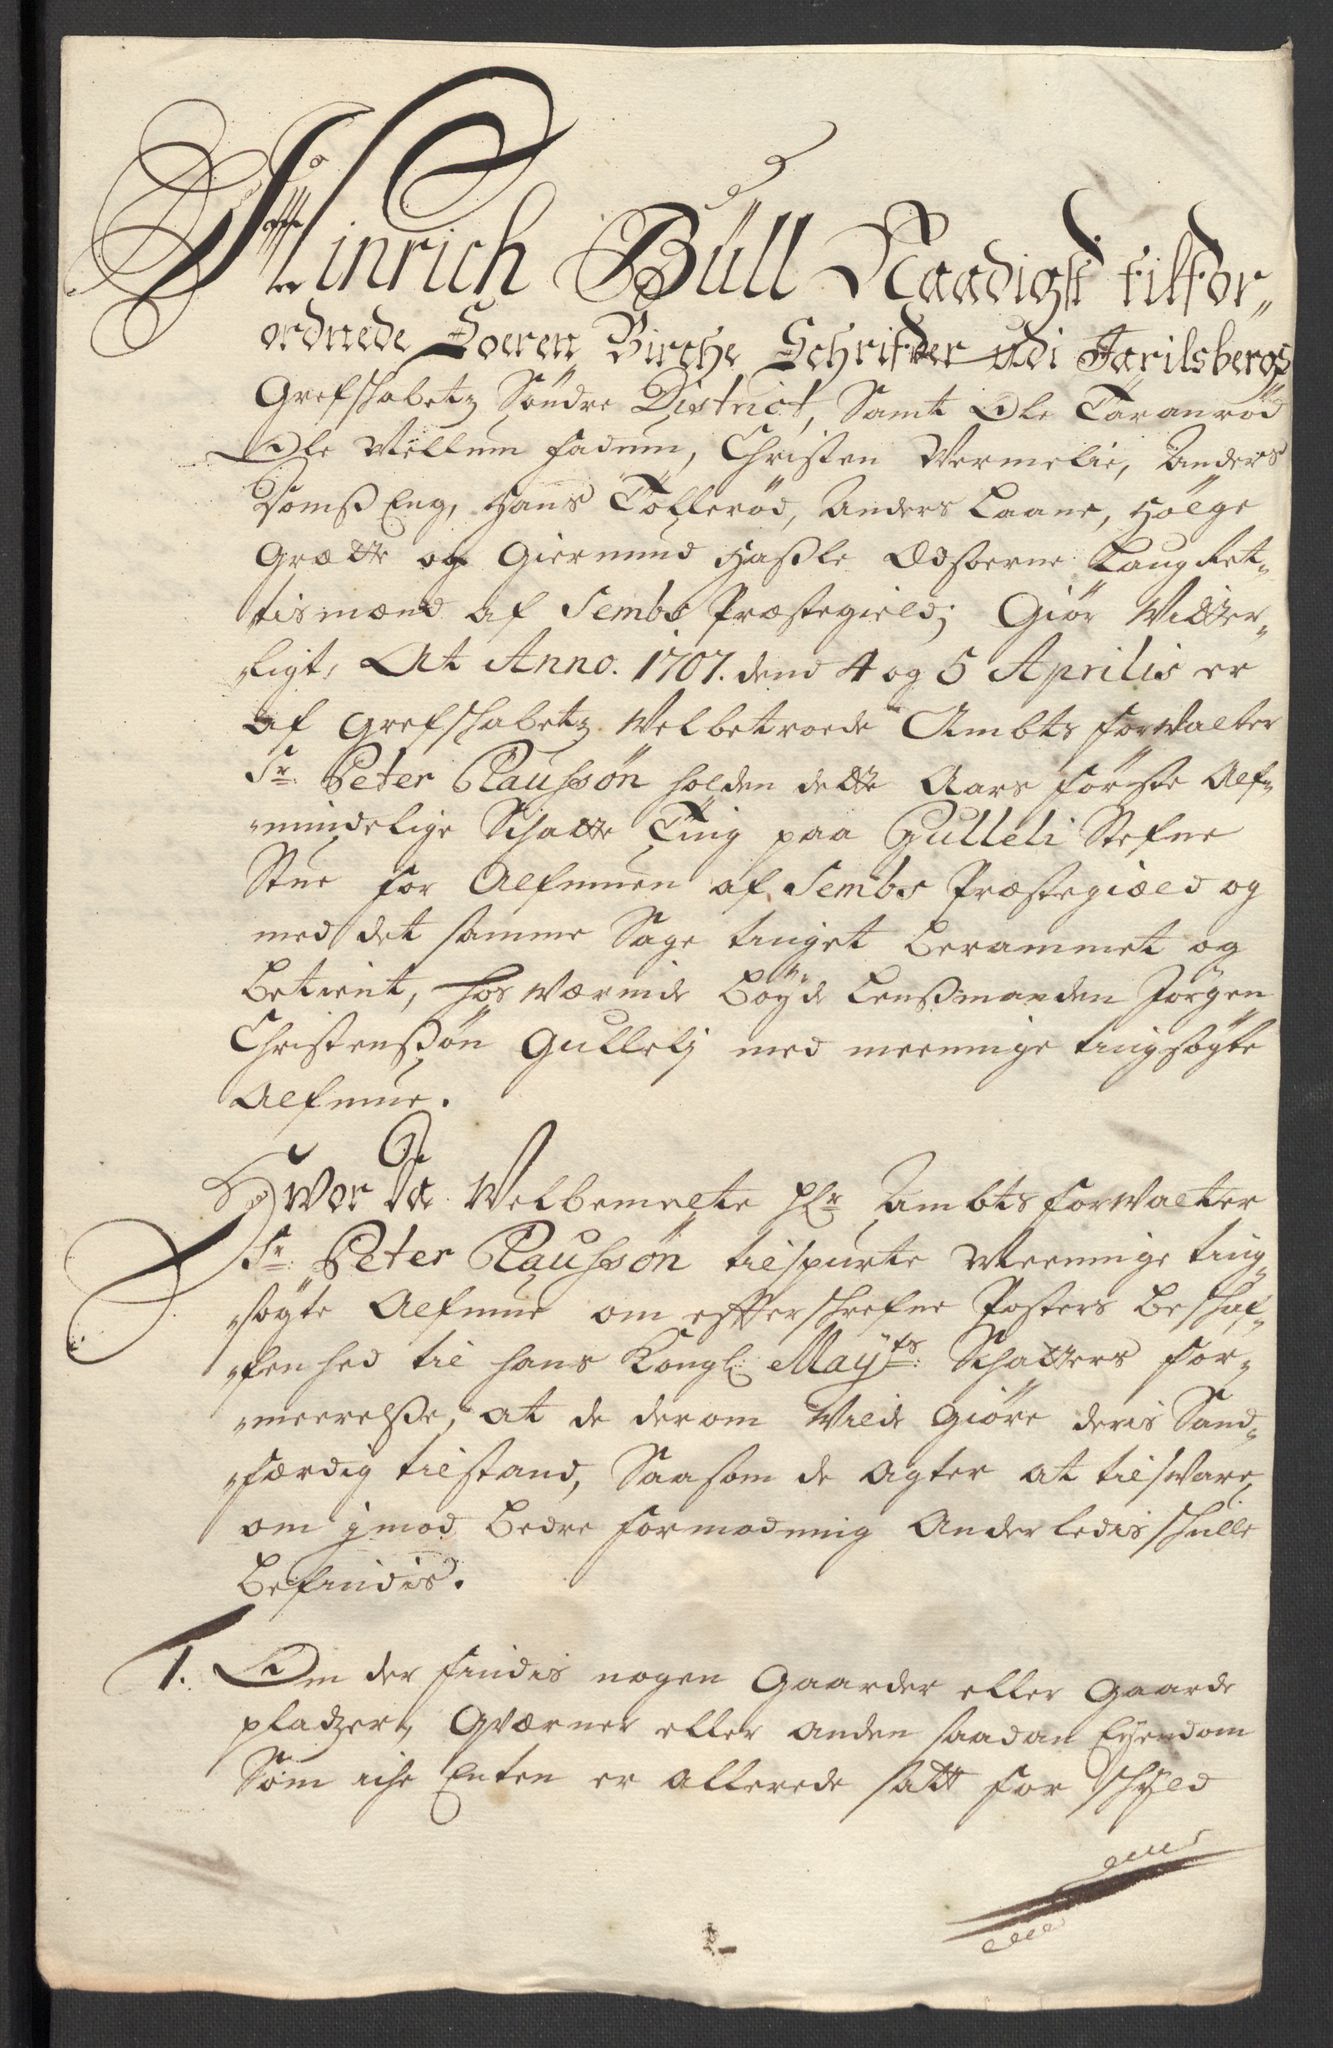 Hinrich Büll Naadigst tilfor„
ordnede Soeren Birche Schrifver udi Jarilsbergs
Grefschabetz Söndre District, Samt Ole Taranröd
Ole Mellum Fadum, Christen Vermelie, Anders
Tomß Eng, Hans Tolleröd, Anders Laane, Hølge
Grætte og Giermund Haßle Edsorne Laugret„
„tismænd af Sembs Præstegield; Giör Vitter„
„ligt, At Anno. 1707. dend 4 og 5 Aprilis er
af Grefschabetz Velbetroede Ambts forvalter
Sr: Peter Claussøn holden dette Aars förste Alf„
„mindelige Schatte Ting paa Gulleli Stefne
Stue for Alfmuen af Sembs Præstegiæld og
med det samme Sage tinget berammet og
betient, hos værende böyde Lensmanden Jörgen
Christenßön Gullelj med meenige tingsögte
Alfmue.
Hvor da Velbemelte Hr Ambtsforvalter
Sr: Peter Claussøn tilspurte Meenige ting„
„sögte Alfmue om efterschrefne Posters beschaf„
„fenhed til Hans Kongl: Mayts: Schatters for„
„meerelße, at de derom vilde giöre deris Sand„
„færdig tilstand, Saasom de agter at tilsvare,
om jmod bedre formodning Anderledis schulle
befindis.
1. Om der findis nogen Gaarder eller Gaarde
pladzer, Qværner eller anden saadan Eyendom
Som iche Enten er allerede satt for schyld